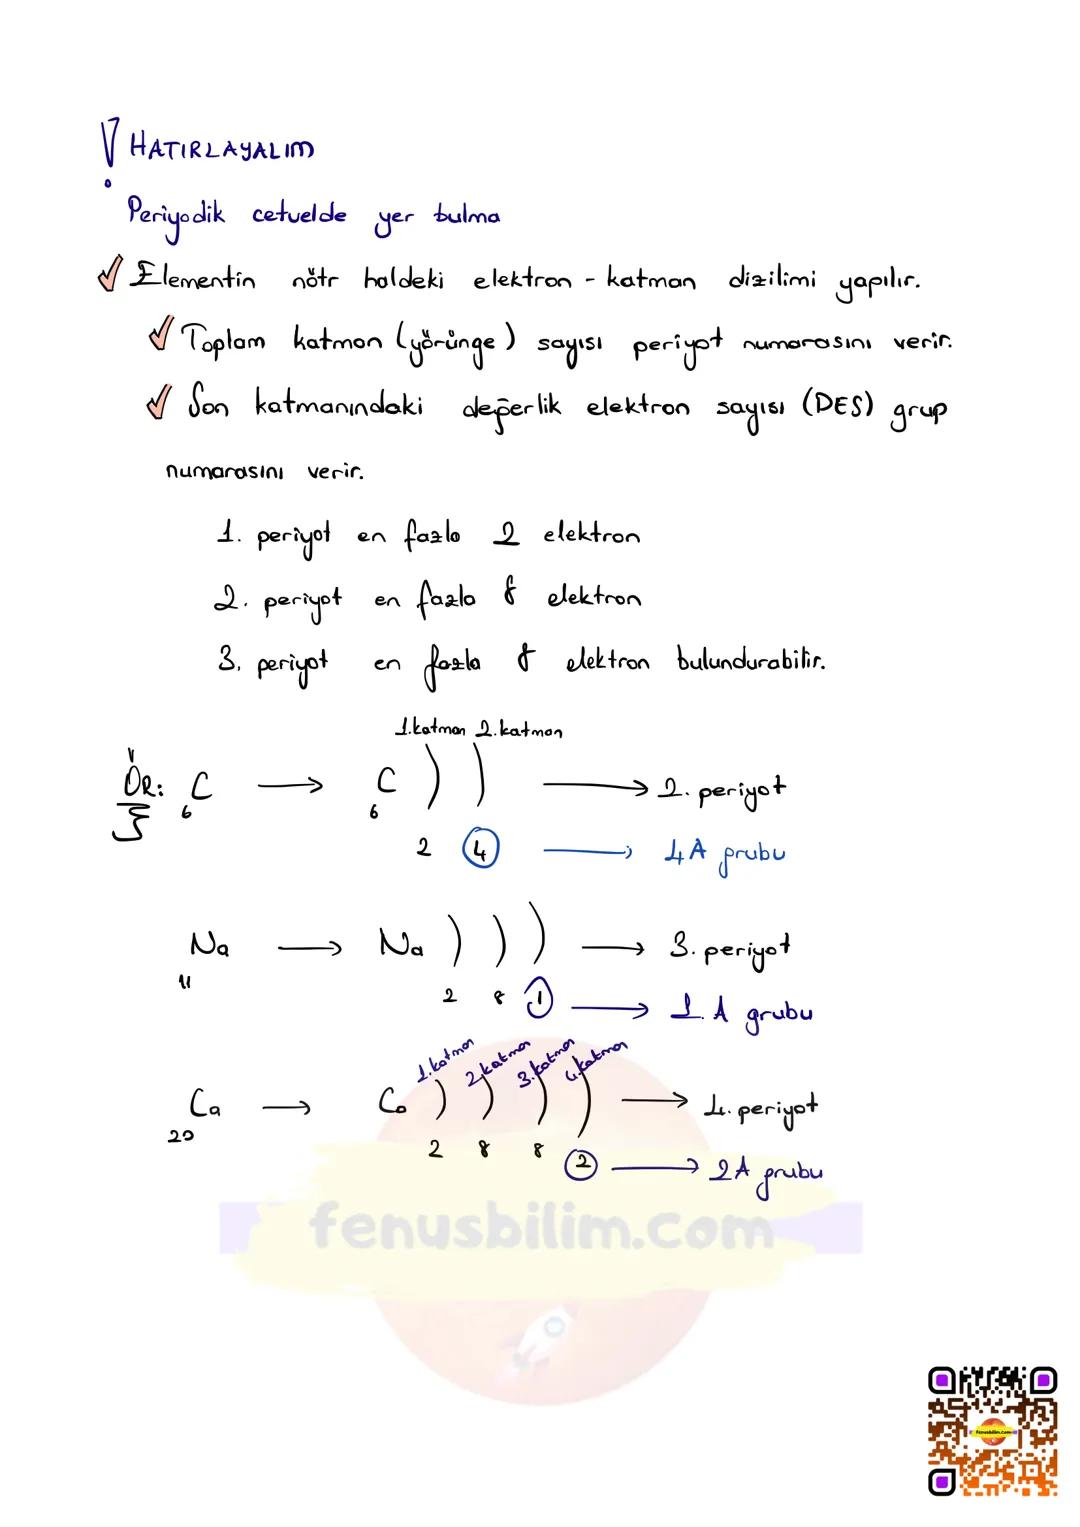 ! HATIRLAYALIM
Periyodik cetvelde yer bulma
✓ Elementin nötr haldeki elektron - katman dizilimi yapılır.
✓ Toplam katman (yörünge) sayısı periyot numarasını verir.
✓ Son katmanındaki değerlik elektron sayısı (DES) grup
numarasını verir.
1. periyot en fazla 2 elektron
2. periyot en fazla 8 elektron
3. periyot en fazla 8 elektron bulundurabilir.
1.katman 2.katman
ÖR: C → C ) ) → 2. periyot
6 6
2 4 → 4A grubu
Na → Na ) ) ) → 3. periyot
11
2 8 1 → 1.A grubu
1.katman 2.katman 3.katman 4.katman
Ca → Ca ) ) ) ) → 4. periyot
20
2 8 8 2 → 2A grubu
fenusbilim.com
fenusbilim.com